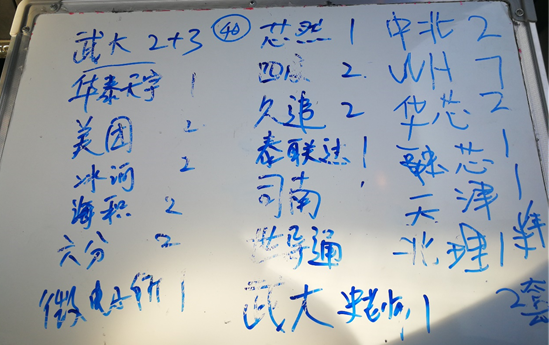 武大 2+3 ㊵ 芯然 1 中北 2
华泰天宇 1 四 2 WH 7
美团 2 久追 2 华芯 2
冰河 2 泰联达 1 芯 1
海积 2 司南 天津 1
六分 2 世导通 北理 1
微电所 1 武大 1 2套